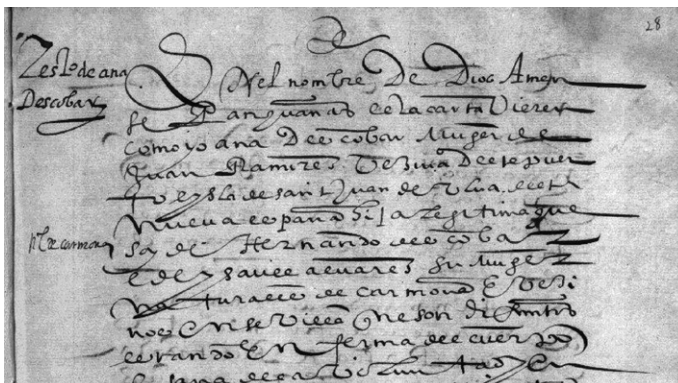 28
Testo de ana
Descobar
En el nombre De Dios Amen
se pan quantos esta carta vieren
como yo ana De escobar Muger de
Juan Ramires Vezina De este puer
to e ysla de san Juan de Vlua desta
Nueua españa hija legitima que
soy de Hernando de escobar
e de ysauel aluares su muger
naturales de carmona e vezi
nos en seuilla que son difuntos
estando enferma del cuerpo
e sana de la Voluntad en
nl de carmona